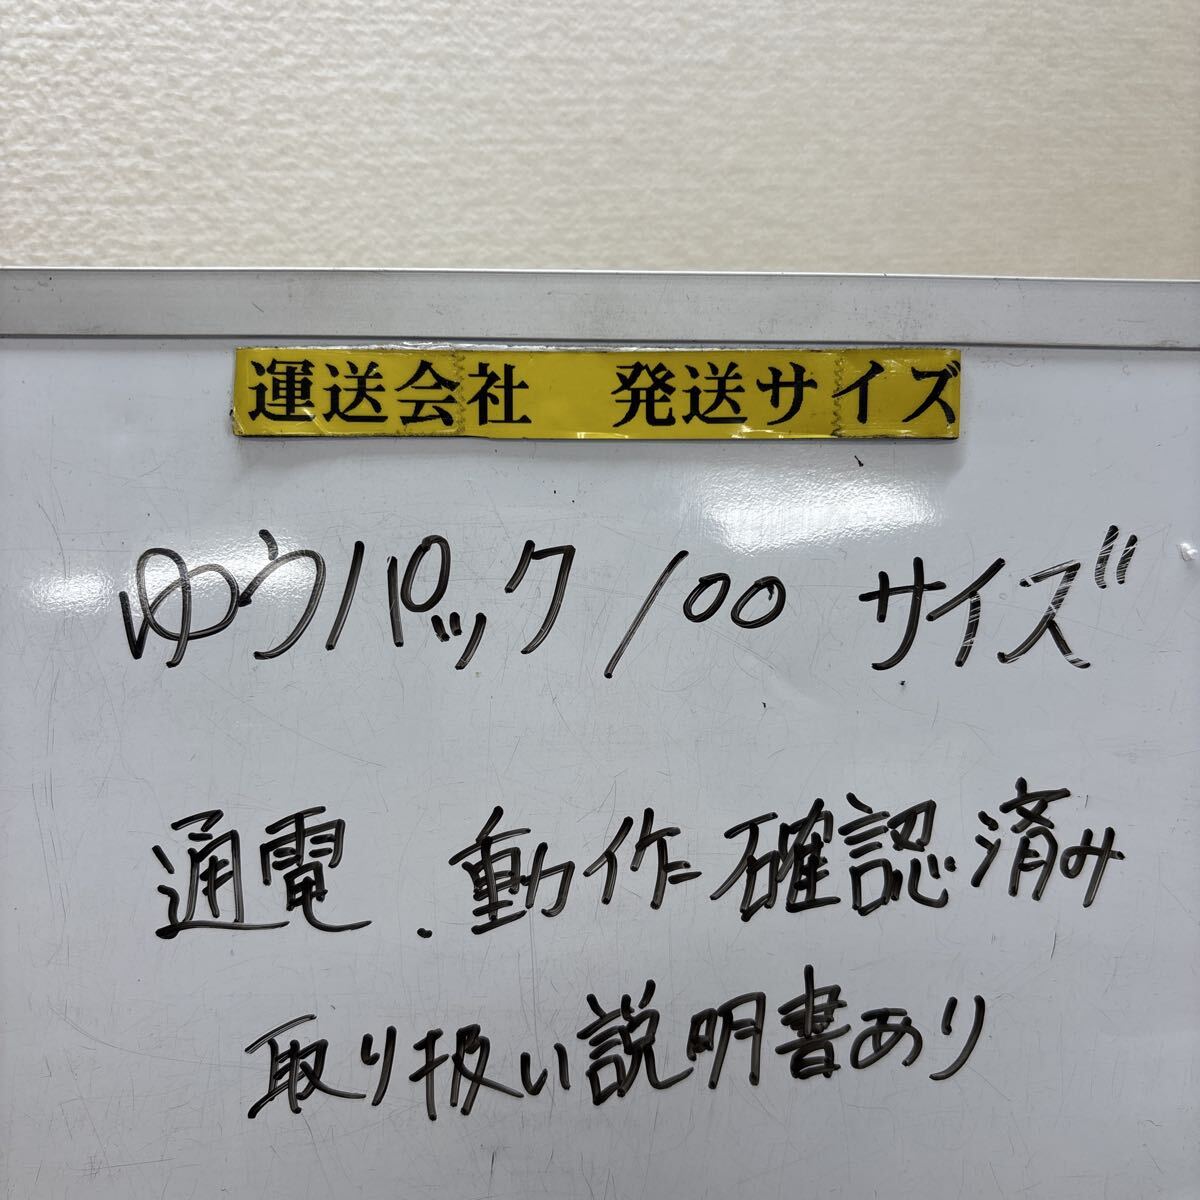 運送会社　発送サイズ
ゆうパック 100 サイズ
通電.動作確認済み
取り扱い説明書あり